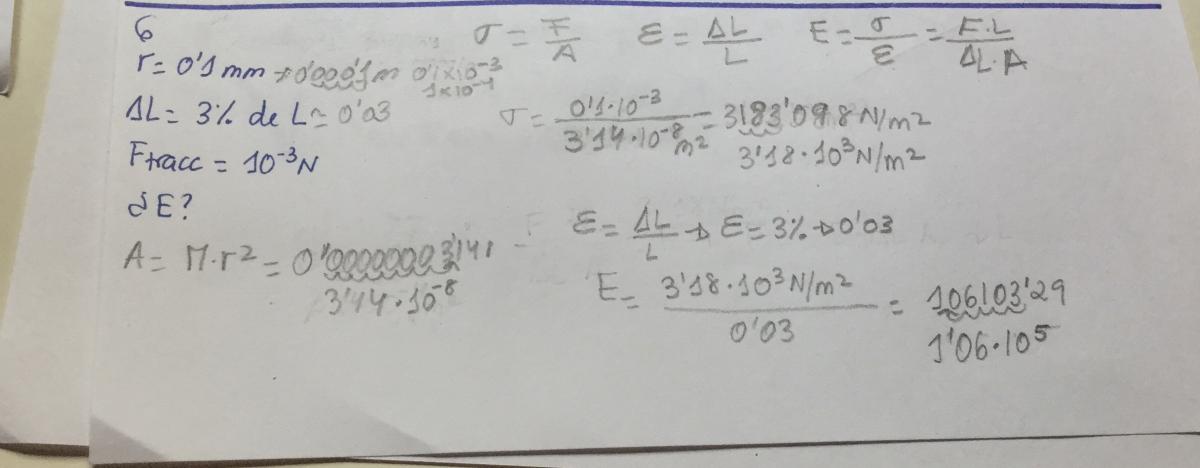 6
σ = F/A   ε = ΔL/L   E = σ/ε = F·L/ΔL·A
r = 0'1 mm → 0'0001 m 0'1×10⁻³
1×10⁻⁴
ΔL = 3% de L ≃ 0'03
σ = 0'1·10⁻³/3'14·10⁻⁸ m² = 3183'098 N/m²
3'18·10³ N/m²
Ftracc = 10⁻³ N
¿E?
ε = ΔL/L → ε = 3% → 0'03
A = Π·r² = 0'00000003'141
3'14·10⁻⁸
E = 3'18·10³ N/m²/0'03 = 106103'29
1'06·10⁵